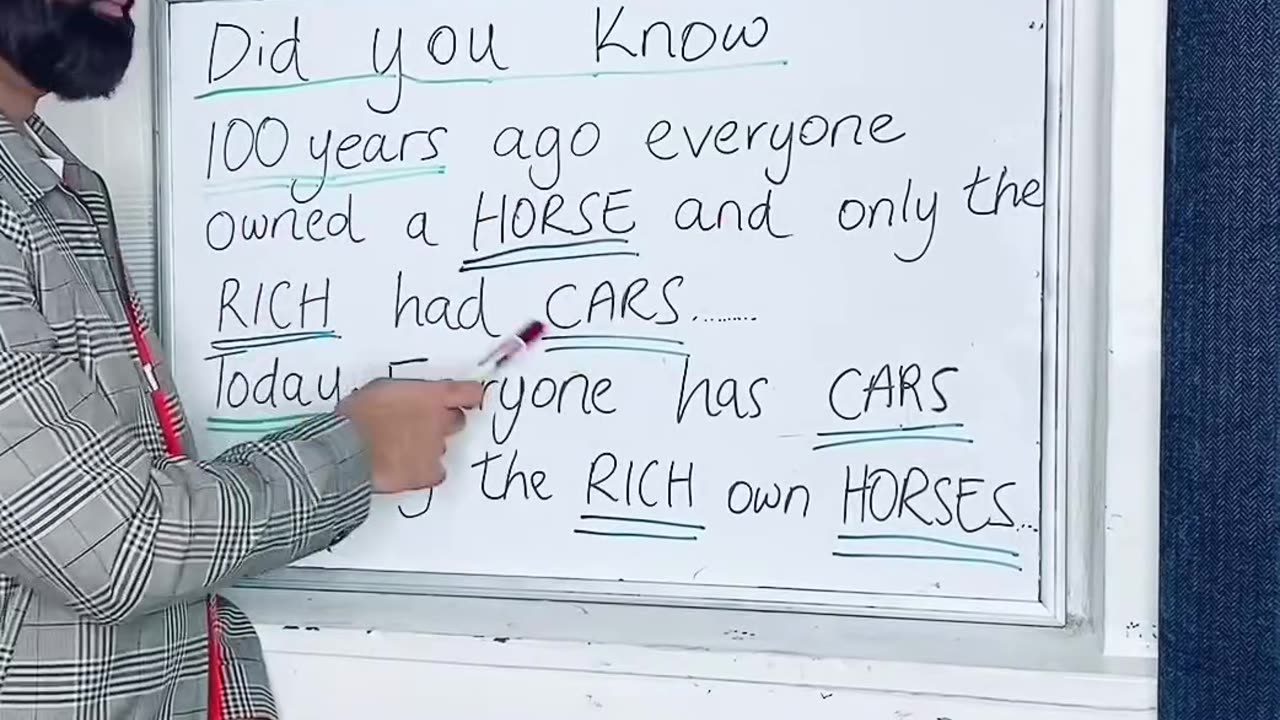 Did you know
100 years ago everyone
owned a HORSE and only the
RICH had CARS.........
Today has CARS
the RICH own HORSES...